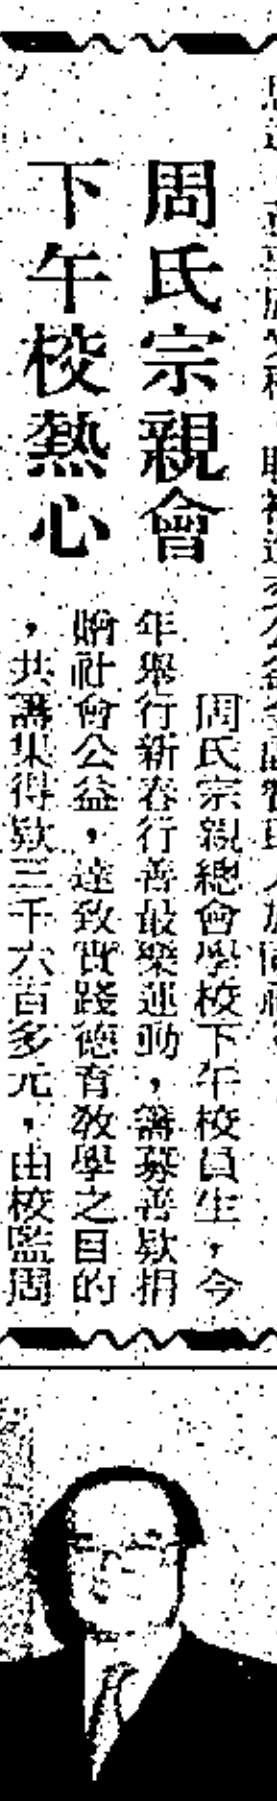 周氏宗親會
下午校熱心
周氏宗親總會學校下午校員生，今
年舉行新春行善最樂運動，籌募善欵捐
贈社會公益，達致實踐德育教學之目的
，共籌集得欵三千六百多元，由校監周